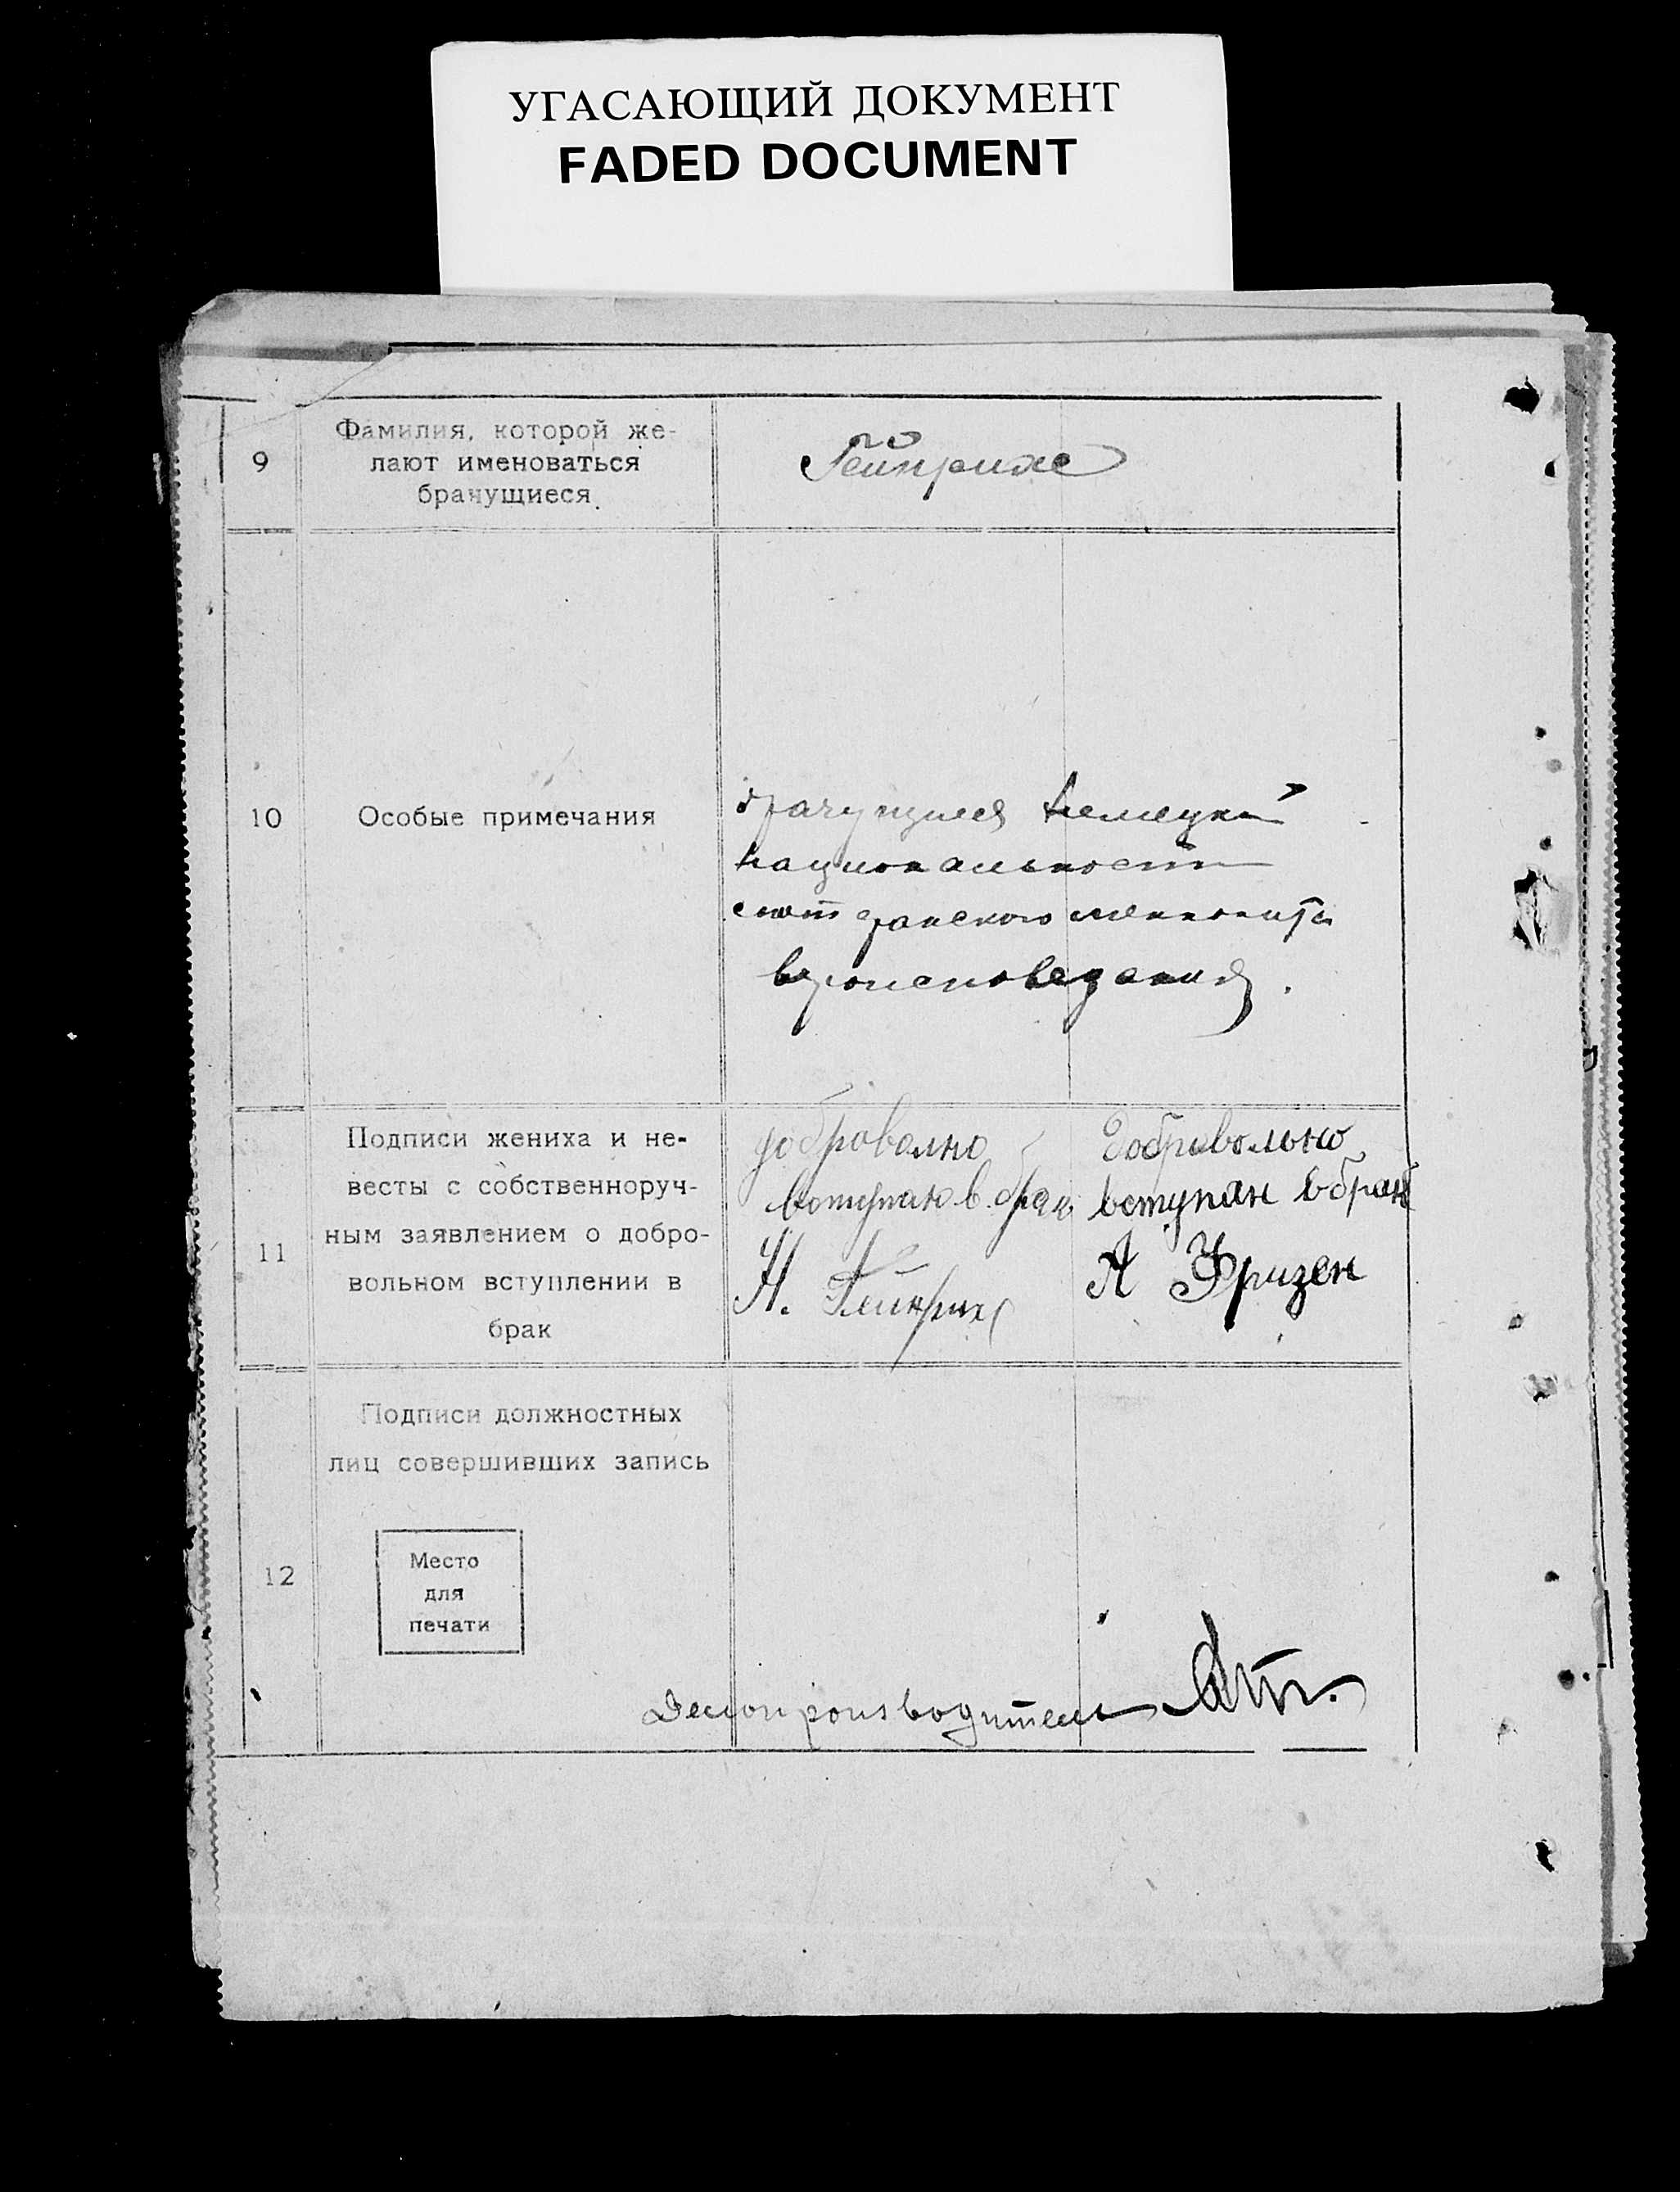 УГАСАЮЩИЙ ДОКУМЕНТ
FADED DOCUMENT
9
Фамилия, которой же-
лают именоваться
брачущиеся.
Гейнрихс
10
Особые примечания
брачущиеся немецкой
национальности
меннонит
вероисповедания.
11
Подписи жениха и не-
весты с собственноруч-
ным заявлением о добро-
вольном вступлении в
брак
доброволно
вступаю в брак
Н. Гейнрихс
Добровольно
вступаю в брак
А Фризен
12
Подписи должностных
лиц совершивших запись
Место
для
печати
Делопроизводитель